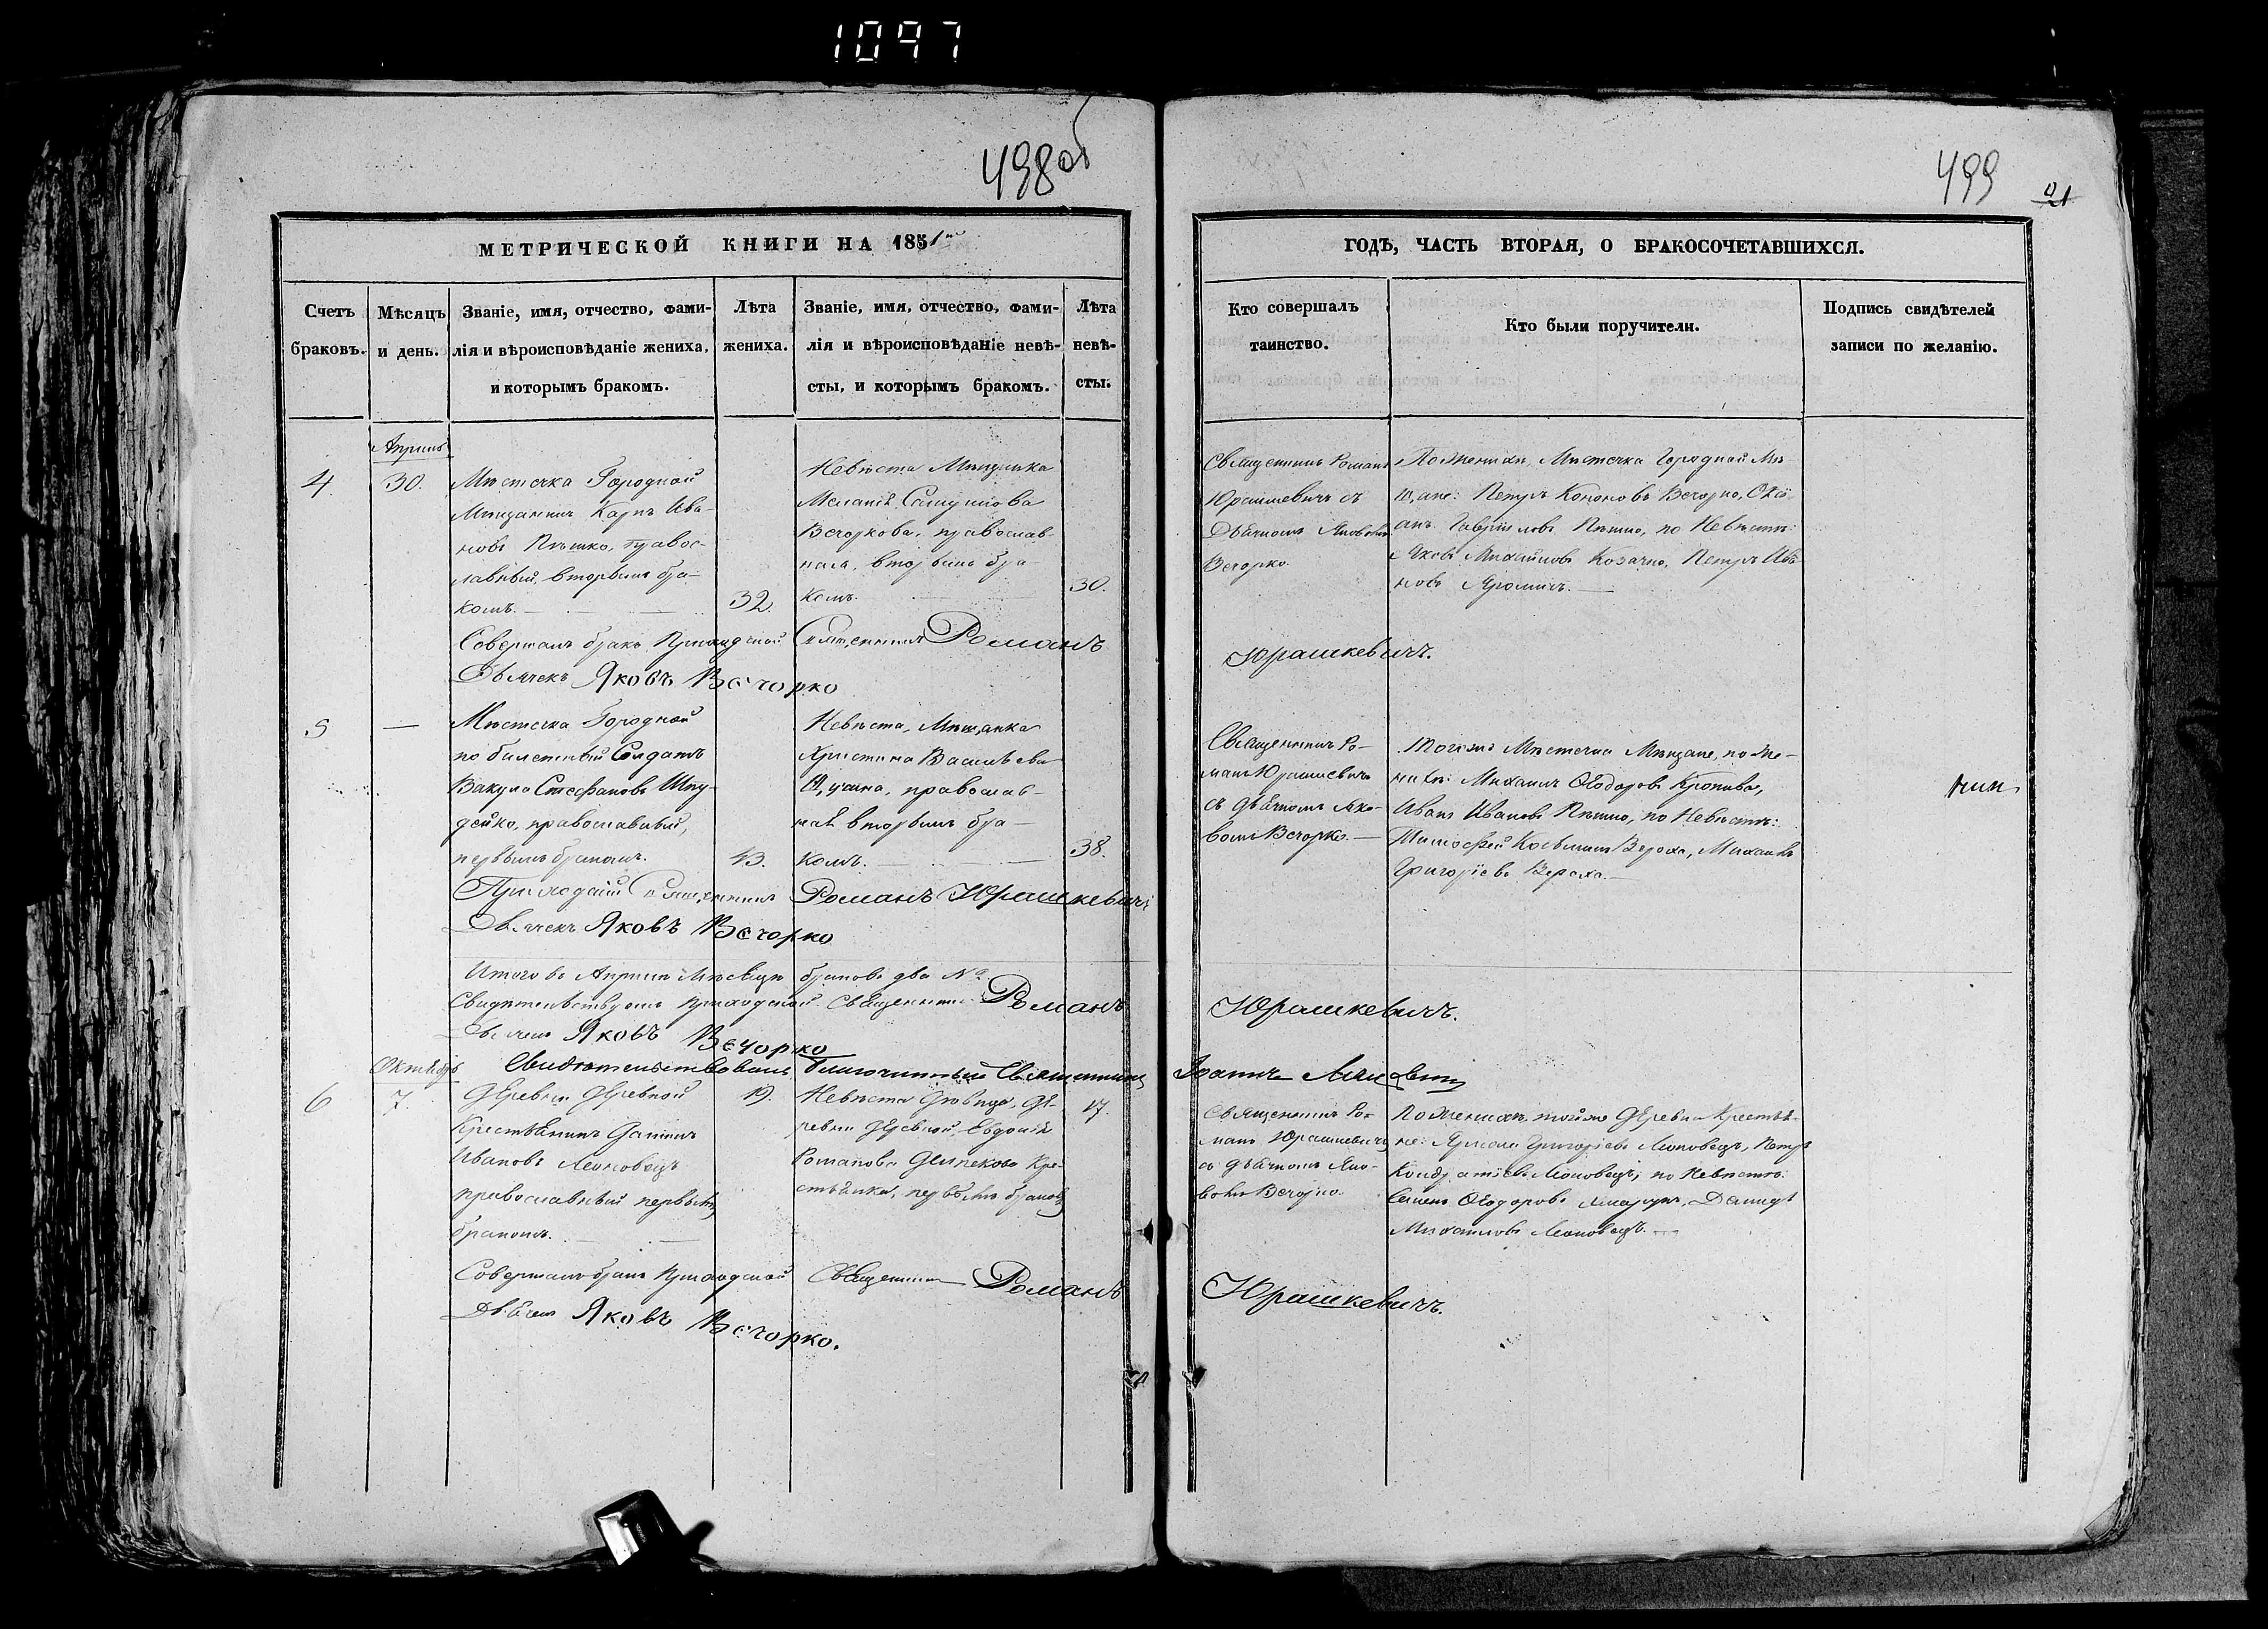 1097
498об
499
21
МЕТРИЧЕСКОЙ КНИГИ НА 1851
ГОДЪ, ЧАСТЬ ВТОРАЯ, О БРАКОСОЧЕТАВШИХСЯ.
Счетъ браковъ.
Мѣсяцъ и день.
Званіе, имя, отчество, фами-
лія и вѣроисповѣданіе жениха,
и которымъ бракомъ.
Лѣта жениха.
Званіе, имя, отчество, фами-
лія и вѣроисповѣданіе невѣ-
сты, и которымъ бракомъ.
Лѣта невѣ-
сты.
Кто совершалъ
таинство.
Кто были поручители.
Подпись свидѣтелей
записи по желанію.
Априль
4.
30.
Мѣстечка Городной
Мѣщанинъ Карпъ Ива-
новъ Пѣшко, правос-
лавный, вторымъ бра-
комъ.
32.
Невѣста Мѣщанка
Вечоркова, православ-
ная, вторымъ бра-
комъ.
30.
Священникъ Романъ
Юрашкевичъ съ
Дьячкомъ Яковомъ
Вечорко.
По Женихѣ, Мѣстечка Городной Мѣ-
щане: Петръ Кононовъ Вечорко,
Гавриловъ Пѣшко, по Невѣстѣ:
Яковъ Михайловъ Козачко, Петръ Ива-
новъ
Совершалъ бракъ Приходской Священникъ Романъ Юрашкевичъ.
Дьячекъ Яковъ Вечорко
5
—
Мѣстечка Городной
по билетный Солдатъ
Вакула Стефановъ Шпу-
дейко, православный,
первымъ бракомъ.
43.
Невѣста, Мѣщанка
Христина Васильева
православ-
ная вторымъ бра-
комъ.
38.
Священникъ Ро-
манъ Юрашкевичъ
съ дьячкомъ Яко-
вомъ Вечорко.
Тогожъ Мѣстечка Мѣщане, по Же-
нихѣ: Михаилъ Ѳеодоровъ Кропива,
Иванъ Ивановъ Пѣшко, по Невѣстѣ:
Тимофей Космынъ Вероха, Михаилъ
Григорьевъ Вероха.
Приходскій Священникъ Романъ Юрашкевичъ
Дьячекъ Яковъ Вечорко
Итого въ Априлѣ Мѣсяцѣ браковъ два №
Свидѣтельствуемъ Приходской Священникъ Романъ Юрашкевичъ.
Дьячекъ Яковъ Вечорко
Свидѣтельствовалъ Благочинный Священникъ Іоаннъ
Октябрь
6
7.
Деревни Деревной
Крестьянинъ
Ивановъ Леоновецъ
православный первымъ
бракомъ.
19.
Невѣста Дѣвица, де-
ревни Деревной, Евдокія
Романова Кре-
стьянка, первымъ бракомъ
17.
Священникъ Ро-
манъ Юрашкевичъ
съ дьячкомъ Яко-
вомъ Вечорко.
По Женихѣ, тойже Деревни Крестья-
не: Григорьевъ Леоновецъ, Петръ
Кондратьевъ Леоновецъ, по Невѣстѣ:
Семенъ Ѳеодоровъ Давидъ
Михаиловъ Леоновецъ.
Совершалъ бракъ Приходской Священникъ Романъ Юрашкевичъ.
Дьячекъ Яковъ Вечорко.